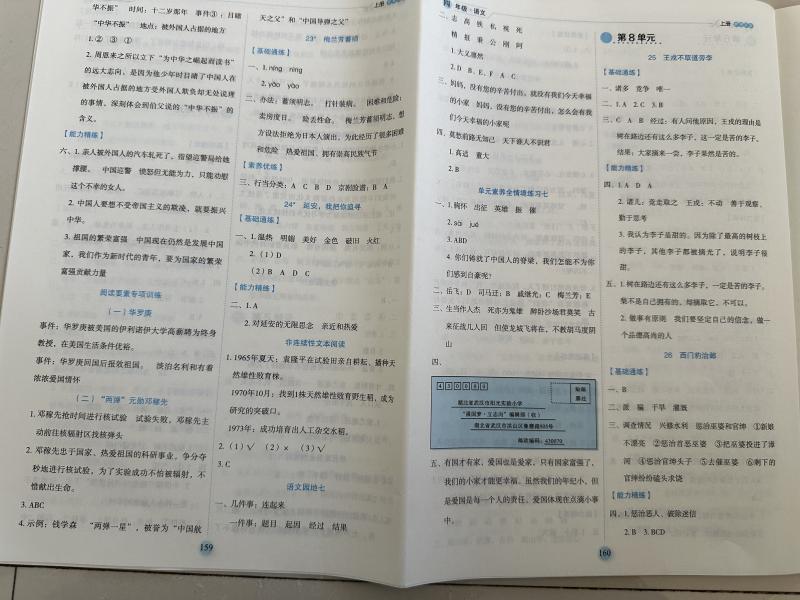 华不振”　时间：十二岁那年　事件③：目睹
“中华不振”　地点：被外国人占据的地方
1. ②　③　①
2. 周恩来之所以立下“为中华之崛起而读书”
的远大志向，是因为他少年时目睹了中国人在
被外国人占据的地方受外国人欺负却无处说理
的事情，深刻体会到伯父说的“中华不振”的
含义。
【能力精练】
六、1. 亲人被外国人的汽车轧死了，指望巡警局给她
撑腰。　中国巡警　愤怒但无能为力，只能劝慰
这个不幸的女人。
2. 中国人要想不受帝国主义的欺凌，就要振兴
中华。
3. 祖国的繁荣富强　中国现在仍然是发展中国
家，我们作为新时代的青年，要为国家的繁荣
富强贡献力量
阅读要素专项训练
（一）华罗庚
事件：华罗庚被美国的伊利诺伊大学高薪聘为终身
教授，在美国生活条件优裕。
事件：华罗庚回国后报效祖国。　淡泊名利和有着
浓浓爱国情怀
（二）“两弹”元勋邓稼先
1. 邓稼先抢时间进行核试验　试验失败，邓稼先主
动前往核辐射区找核弹头
2. 邓稼先忠于国家、热爱祖国的科研事业，争分夺
秒地进行核试验，为了实验成功不怕被辐射，不
惜献出生命。
3. ABC
4. 示例：钱学森　“两弹一星”，被誉为“中国航
159
天之父”和“中国导弹之父”
23* 梅兰芳蓄须
【基础通练】
一、1. níng　nìng
2. yào　yāo
二、办法：蓄须明志。　打针装病。　困难和危险：
卖房度日。　险丢性命。　梅兰芳蓄须明志，想
方设法拒绝为日本人演出，为此经历了很多困难
和危险　热爱祖国、拥有崇高民族气节
【素养优练】
三、行当分类：A　C　B　D　京剧脸谱：B　A
24* 延安，我把你追寻
【基础通练】
一、1. 温热　明媚　美好　金色　破旧　火红
2.（1）D
（2）B　A　D　C
【能力精练】
二、1. A
2. 对延安的无限思念　亲近和热爱
非连续性文本阅读
1. 1965年夏天：袁隆平在试验田亲自耕耘、播种天
然雄性败育株。
1970年10月：找到1株天然雄性败育野生稻，成为
研究的突破口。
1973年：成功培育出人工杂交水稻。
2.（1）√　（2）×　（3）√
3. C
语文园地七
一、几件事：连起来
一件事：题目　起因　经过　结果
上册
四年级·语文
上册
二、志　高　铁　私　视　死
精　报　秉　公　刚　阿
1. 大义凛然
2. D　B、E、F　A　C
三、妈妈，没有您的辛苦付出，就没有我们今天幸福
的小家　妈妈，没有您的辛苦付出，怎么会有我
们今天幸福的小家呢
四、莫愁前路无知己　天下谁人不识君
1. 高适　董大
2. B
单元素养全情境练习七
一、1. 胸怀　出征　英雄　振　催
2. sài　jué
3. ABD
4. 你们铸就了中国人的脊梁，我们怎能不为你
们感到自豪呢？
二、岳飞：D　司马迁：B　戚继光：C　梅兰芳：E
三、生当作人杰　死亦为鬼雄　醉卧沙场君莫笑　古
来征战几人回　但使龙城飞将在，不教胡马度阴
山
四、
430080
贴邮
票处
湖北省武汉市阳光实验小学
“强国梦·立志向”编辑部（收）
邮政编码：430070
五、有国才有家，爱国也是爱家，只有国家富强了，
我们的小家才能更幸福。虽然我们的年纪小，但
是爱国是每一个人的责任，爱国体现在点滴小事
中。
160
第8单元
25　王戎不取道旁李
【基础通练】
一、诸多　竞争　唯一
二、1. A　2. C　3. B
三、C　A　B　经过：有人问他原因，王戎的理由是
树在路边还有这么多李子，这一定是苦的李子。
结果：大家摘来一尝，李子果然是苦的。
【能力精练】
四、1. A　D　A
2. 诸儿：竞走取之　王戎：不动　善于观察、
勤于思考
3. 我认为李子是甜的。因为除了最高的树枝上
的李子，其他李子都被摘光了，说明李子很
甜。
五、1. 树在路边还有这么多李子，一定是苦的李子。
梨不是自己拥有的，每摘取它，不可以。
2. 做事有原则　我们要坚定自己的信念，做一
个品德高尚的人
26　西门豹治邺
【基础通练】
一、B
二、派　骗　干旱　灌溉
三、调查情况　兴修水利　惩治巫婆和官绅　①新娘
不漂亮　②惩治首恶巫婆　③把巫婆投进了漳
河　④惩治官绅头子　⑤去催巫婆　⑥剩下的
官绅纷纷磕头求饶
【能力精练】
四、1. 惩治恶人、破除迷信
2. B　3. BCD